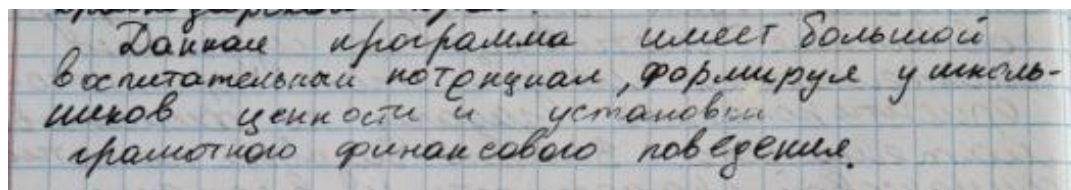 Данная программа имеет большой
воспитательный потенциал, формируя у школь-
ников ценности и установки
грамотного финансового поведения.